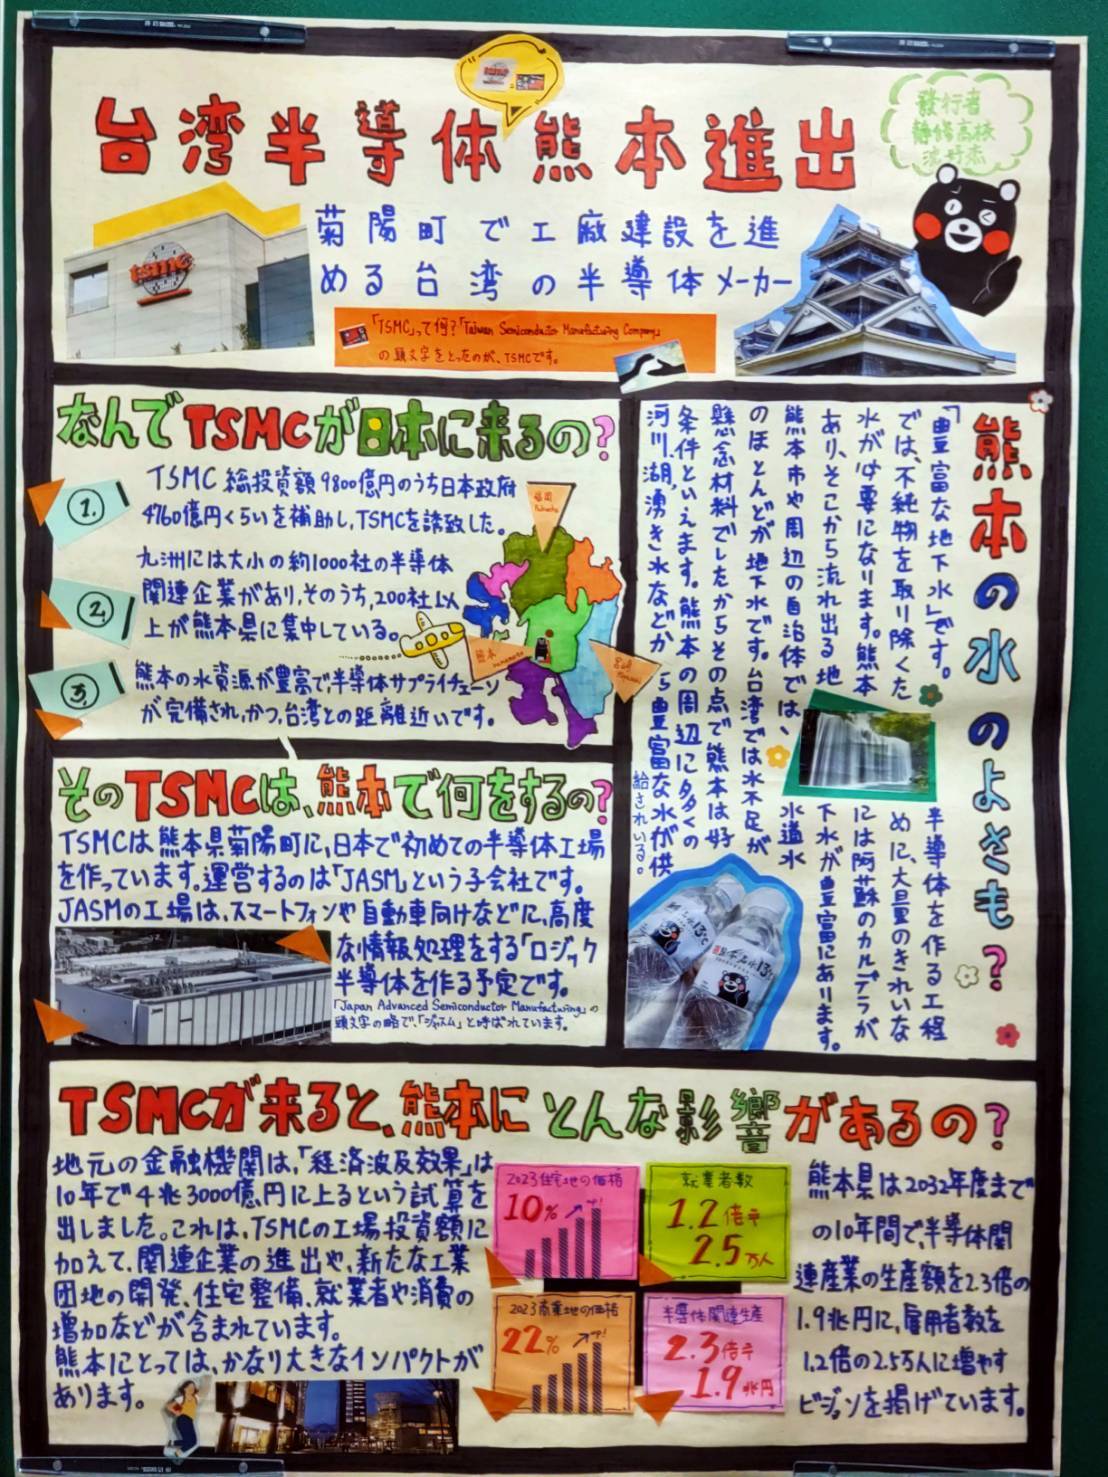 台湾半導体熊本進出
發行者
高校
tsmc
菊陽町で工廠建設を進
める台湾の半導体メーカー
「TSMC」って何?「Taiwan Semiconductor Manufacturing Company」
の頭文字をとったのが、TSMCです。
なんでTSMCが日本に来るの?
1.
TSMC 総投資額9800億円のうち日本政府
4760億円くらいを補助し、TSMCを誘致した。
2.
九洲には大小の約1000社の半導体
関連企業があり、そのうち、200社以
上が熊本県に集中している。
3.
熊本の水資源が豊富で、半導体サプライチェーン
が完備され、かつ、台湾との距離近いです。
福岡
Fukuoka
熊本
Kumamoto
熊本の水のよさも?
「豊富な地下水」です。
では、不純物を取り除くた
水が必要になります。熊本
あり、そこから流れ出る地
熊本市や周辺の自治体では、
のほとんどが地下水です。台湾では水不足が
懸念材料でしたからその点で熊本は好
条件といえます。熊本の周辺に多くの
河川、湖、湧き水などから豊富な水が供
給されいる。
半導体を作る工程
めに、大量のきれいな
には阿蘇のカルデラが
下水が豊富にあります。
水道水
13℃
13℃
そのTSMCは、熊本で何をするの?
TSMCは熊本県菊陽町に、日本で初めての半導体工場
を作っています。運営するのは「JASM」という子会社です。
JASMの工場は、スマートフォンや自動車向けなどに、高度
な情報処理をする「ロジック
半導体を作る予定です。
「Japan Advanced Semiconductor Manufacturing」の
頭文字の略で、「ジャスム」と呼ばれています。
TSMCが来ると、熊本にとんな影響があるの?
地元の金融機関は、「経済波及効果」は
10年で4兆3000億円に上るという試算を
出しました。これは、TSMCの工場投資額に
加えて、関連企業の進出や、新たな工業
団地の開発、住宅整備、就業者や消費の
増加などが含まれています。
熊本にとっては、かなり大きなインパクトが
あります。
2023住宅地の価格
10% up!
就業者数
1.2倍
2.5万人
2023商業地の価格
22% up!
半導体関連生産
2.3倍
1.9兆円
熊本県は2032年度まで
の10年間で、半導体関
連産業の生産額を2.3倍の
1.9兆円に、雇用者数を
1.2倍の2.5万人に増やす
ビジョンを掲げています。